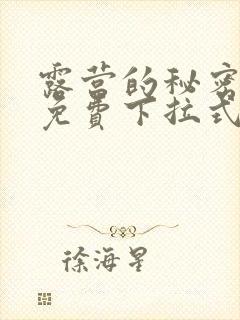 露营的秘密
免费下拉式
徐海星